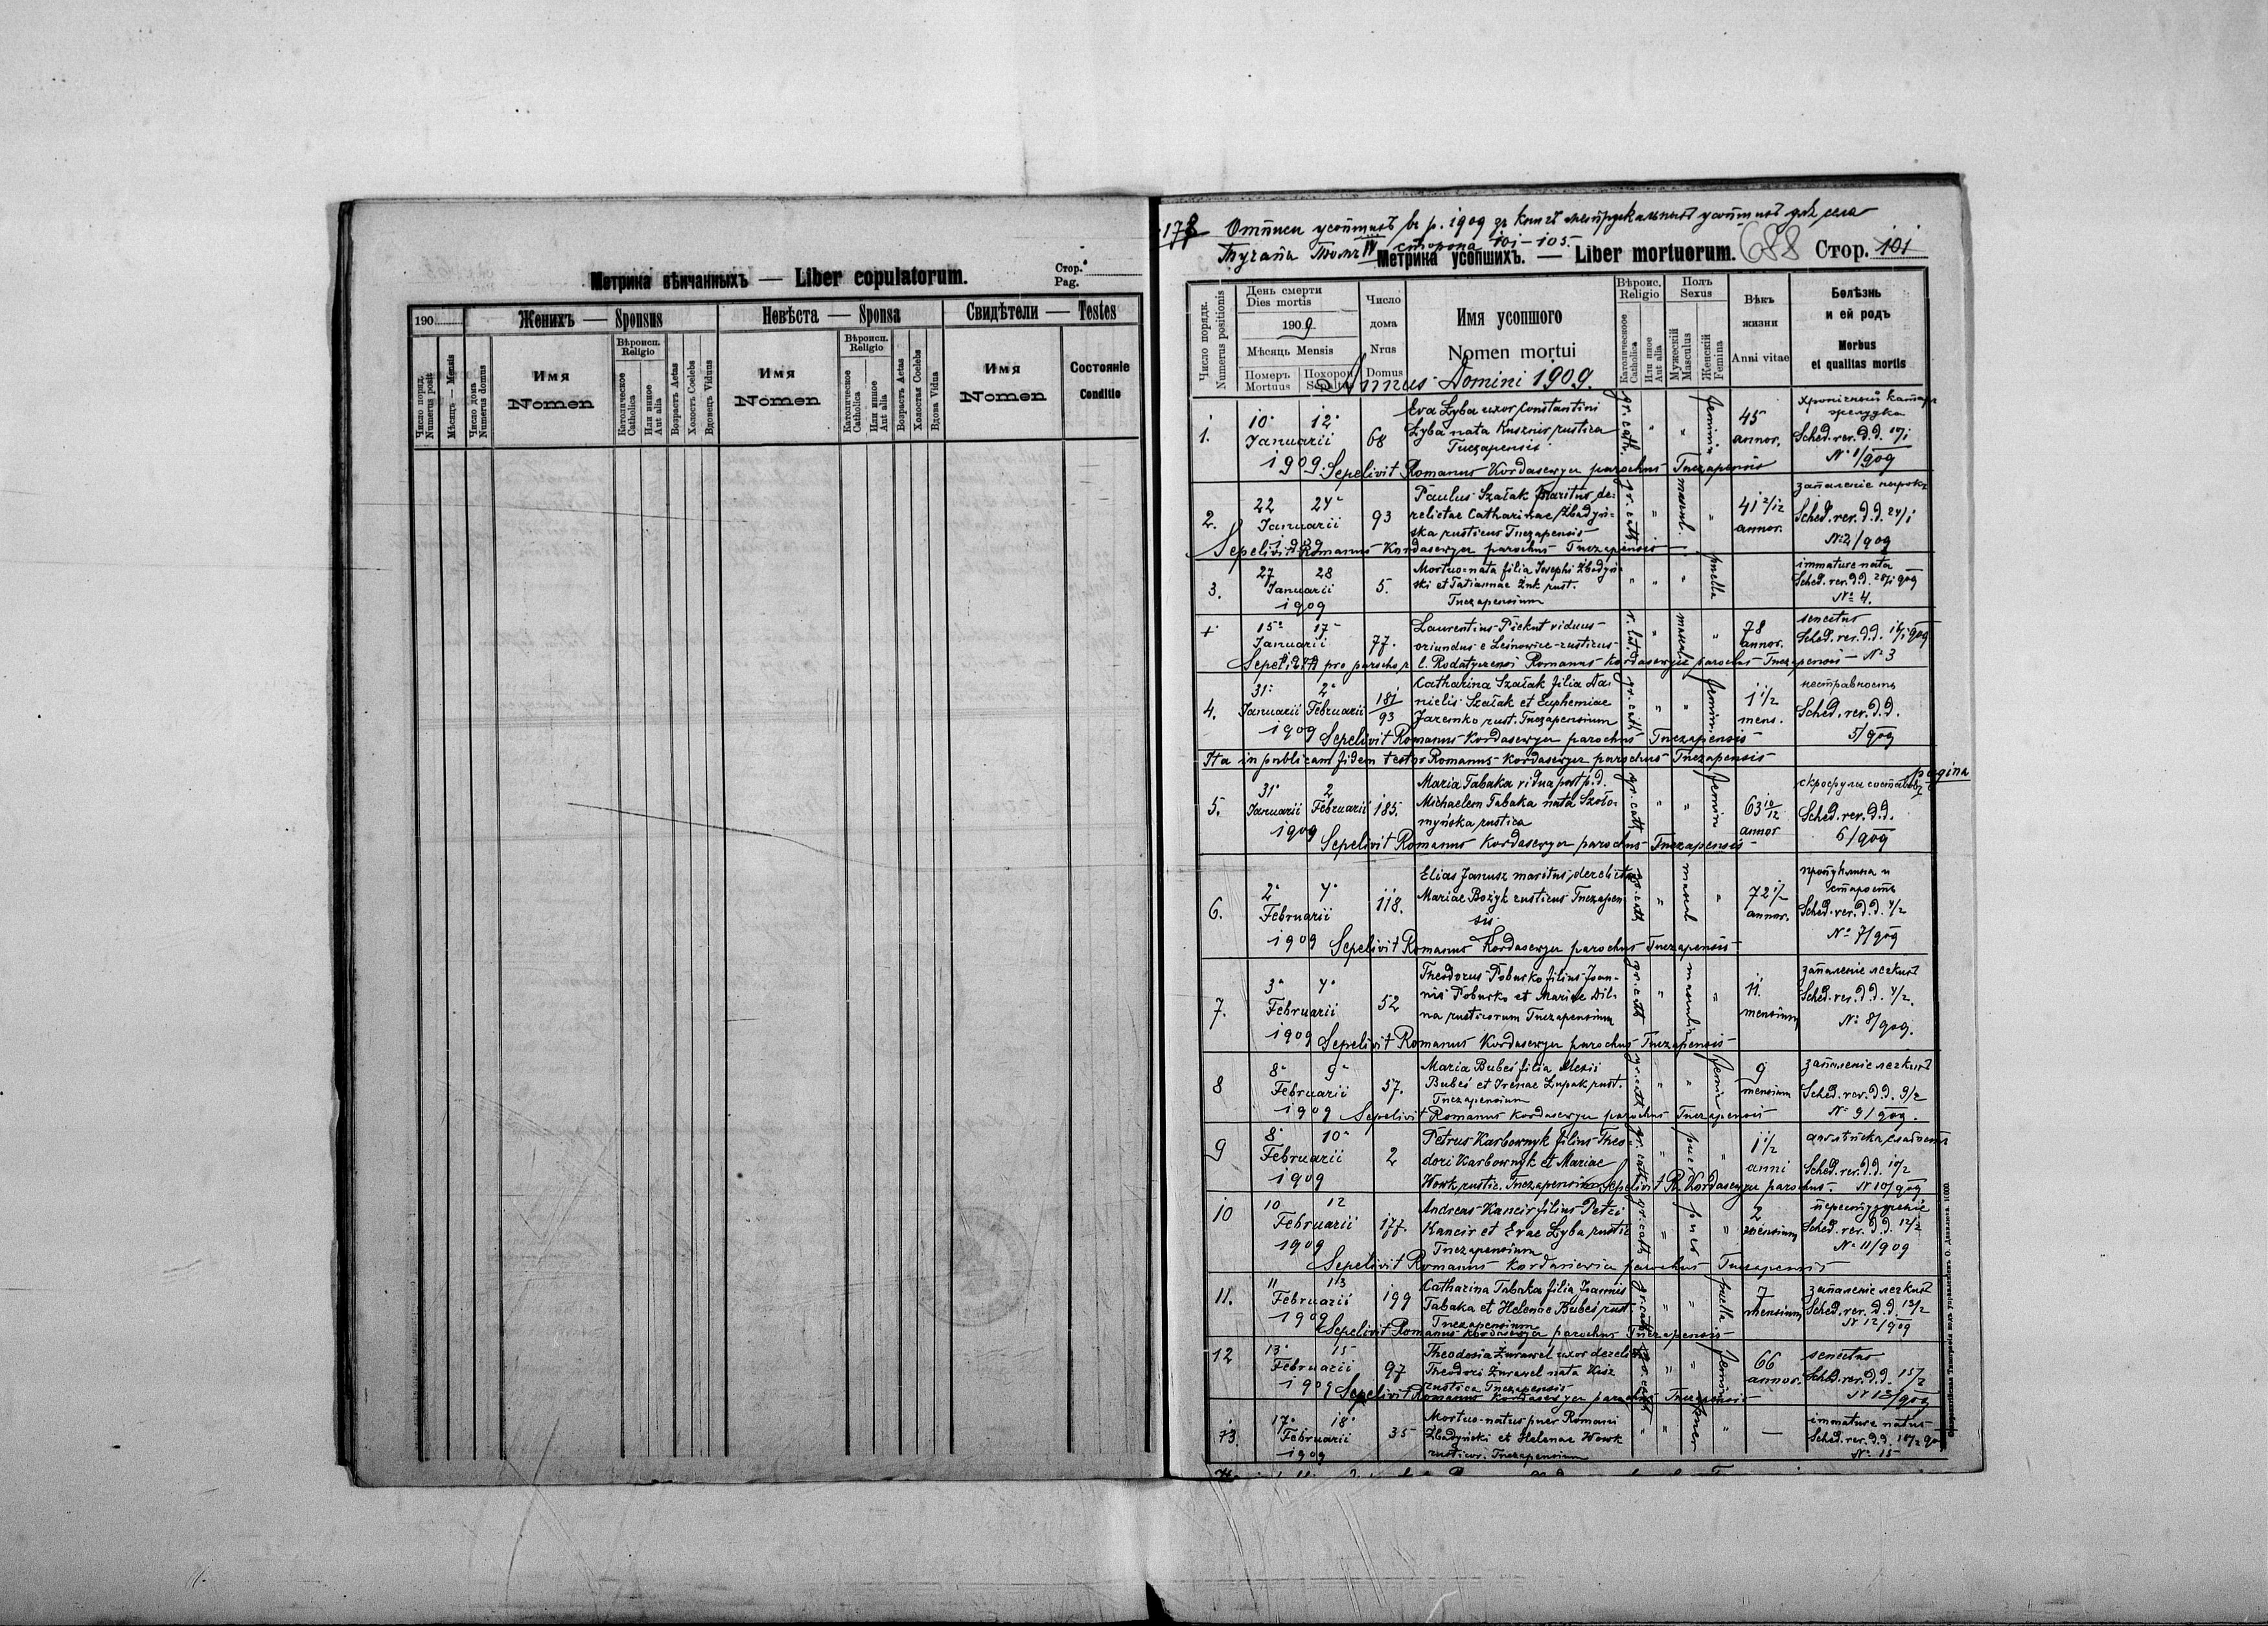 Метрика вѣнчанныхъ — Liber copulatorum.
Стор.
Pag.
190
Женихъ — Sponsus
Невѣста — Sponsa
Свидѣтели — Testes
Число поряд.
Numerus posit
Мѣсяцъ — Mensis
Число дома
Numerus domus
Имя
Nomen
Вѣроисп.
Religio
Католическое
Catholica
Или иное
Aut alia
Возрастъ Aetas
Холостъ Coelebs
Вдовецъ Viduus
Имя
Nomen
Вѣроисп.
Religio
Католическое
Catholica
Или иное
Aut alia
Возрастъ Aetas
Холостая Coelebs
Вдова Vidua
Имя
Nomen
Состояніе
Conditio
Отписи усопшихъ в р. 1909 зъ книгъ метрикальныхъ усопшихъ для села
Тучапы Томъ IV сторона 101–105.
Метрика усопшихъ. — Liber mortuorum. 688 Стор. 101
Число порядк.
Numerus positionis
День смерти
Dies mortis
1909
Мѣсяць Mensis
Померъ
Mortuus
Похорон
Sepultus
Число
дома
Nrus
Domus
Имя усопшого
Nomen mortui
Вѣроис.
Religio
Католическое
Catholica
Или иное
Aut alia
Полъ
Sexus
Мужескій
Masculus
Женскій
Femina
Вѣкъ
жизни
Anni vitae
Болѣзнь
и ей родъ
Morbus
et qualitas mortis
Annus Domini 1909.
1. 10 12 Januarii 1909 68
Eva Zyba uxor Constantini
Zyba nata Kusznir rustica
Tuczapensis
gr. cath. " " femina 45 annor.
хронічный катар
желудка
Sched. rev. d.d. 17/1
No 1/909
Sepelivit Romanus Kordasewycz parochus Tuczapensis
2. 22 24 Januarii 1909 93
Paulus Szałak maritus de-
relictae Catharinae Zbadyń-
ska rusticus Tuczapensis
gr. cath. " mascul. " 41 2/12 annor.
запаленіе нирокъ
Sched. rev. d.d. 24/1
No 2/909
Sepelivit Romanus Kordasewycz parochus Tuczapensis
3. 27 28 Januarii 1909 5.
Mortuo-nata filia Josephi Zbadyń-
ski et Tatiannae Żuk rust.
Tuczapensium
" " " puella
immature nata
Sched. rev. d.d. 28/1 909
No 4.
+ 15 17 Januarii 77.
Laurentius Piekut viduus
oriundus e Leśnowice rusticus
r. lat. " mascul. " 78 annor.
senectus
Sched. rev. d.d. 16/1 909
Sepelivit pro parocho r. l. Rodatyczensi Romanus Kordasewycz parochus Tuczapensis — No 3
4. 31 2 Januarii Februarii 1909 181/93
Catharina Szałak filia Da-
nielis Szałak et Euphemiae
Jaremko rust. Tuczapensium
gr. cath. " " femina 1 1/2 mens.
нестравность
Sched. rev. d.d.
5/909
Sepelivit Romanus Kordasewycz parochus Tuczapensis
Ita in publicam fidem testor Romanus Kordasewycz parochus Tuczapensis
pagina
5. 31 2 Januarii Februarii 1909 185.
Maria Tabaka vidua post p.d.
Michaelem Tabaka nata Szoło-
myńska rustica
gr. cath. " " femina 63 10/12 annor
скрофулы составовъ
Sched. rev. d.d.
6/909
Sepelivit Romanus Kordasewycz parochus Tuczapensis
6. 2 4 Februarii 1909 118.
Elias Janusz maritus derelictae
Mariae Bożyk rusticus Tuczapen-
sis
gr. cath. " mascul " 72 1/2 annor.
пропуклина и
старость
Sched. rev. d.d. 4/2
No 7/909
Sepelivit Romanus Kordasewycz parochus Tuczapensis
7. 3 4 Februarii 1909 52
Theodorus Poburko filius Joan-
nis Poburko et Mariae Dil-
na rusticorum Tuczapensium
gr. cath " masculin " 11 mensium
запаленіе легкихъ
Sched. rev. d.d. 4/2.
No 8/909.
Sepelivit Romanus Kordasewycz parochus Tuczapensis
8 8 9 Februarii 1909 57.
Maria Bubeś filia Alexii
Bubeś et Irenae Łupak rust.
Tuczapensium
gr. cath " " femina 9 mensium
запаленіе легкихъ
Sched. rev. d.d. 9/2
No 9/909.
Sepelivit Romanus Kordasewycz parochus Tuczapensis
9 8 10 Februarii 1909 2
Petrus Karbownyk filius Theo-
dori Karbownyk et Mariae
Wowk rustic. Tuczapensium Sepelivit R. Kordasewycz parochus.
gr. cath. " puer " 1 1/2 anni
Sched. rev. d.d. 10/2
N 10/909
10 10 12 Februarii 1909 177.
Andreas Kancir filius Petri
Kancir et Evae Zyba rustic
Tuczapensium
gr. cath. " puer " 2 mensium
перестудженіе
Sched. rev. d.d. 12/2
No 11/909
Sepelivit Romanus Kordasiewicz parochus Tuczapensis
11. 11 13 Februarii 1909 199
Catharina Tabaka filia Joannis
Tabaka et Helenae Bubeś rust.
Tuczapensium
gr. cath. " " puella 7 mensium
запаленіе легкихъ
Sched. rev. d.d. 13/2
N 12/909
Sepelivit Romanus Kordasewycz parochus Tuczapensis
12 13 15 Februarii 1909 97
Theodosia Żurawel uxor derelicta
Theodori Żurawel nata Kisz
rustica Tuczapensis
gr. cath. " " femina 66 annor.
senectus
Sched. rev. d.d. 15/2
N 13/909
Sepelivit Romanus Kordasewycz parochus Tuczapensis
13. 17 18 Februarii 1909 35
Mortuo-natus puer Romani
Zbadyński et Helenae Wowk
rusticor. Tuczapensium
" " puer " —
immature natus
Sched. rev. d.d. 18/2 909
No 15